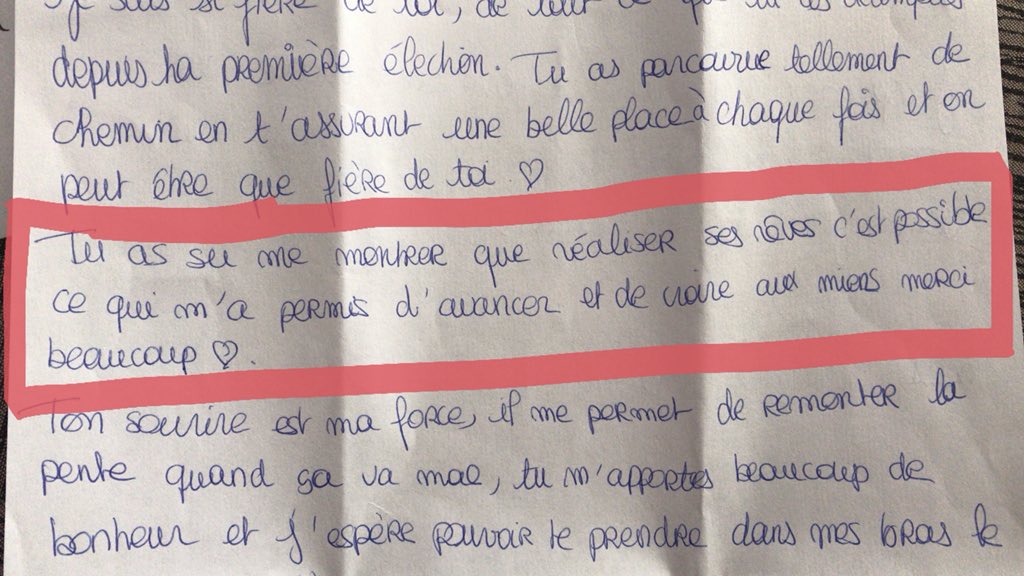 je suis si fière de toi, de tout ce que tu as accompli
depuis ta première élection. Tu as parcourue tellement de
chemin en t'assurant une belle place à chaque fois et on
peut être que fière de toi ♡
Tu as su me montrer que réaliser ses rêves c'est possible
ce qui m'a permis d'avancer et de croire aux miens merci
beaucoup ♡.
Ton sourire est ma force, il me permet de remonter la
pente quand ça va mal, tu m'apportes beaucoup de
bonheur et j'espère pouvoir te prendre dans mes bras le